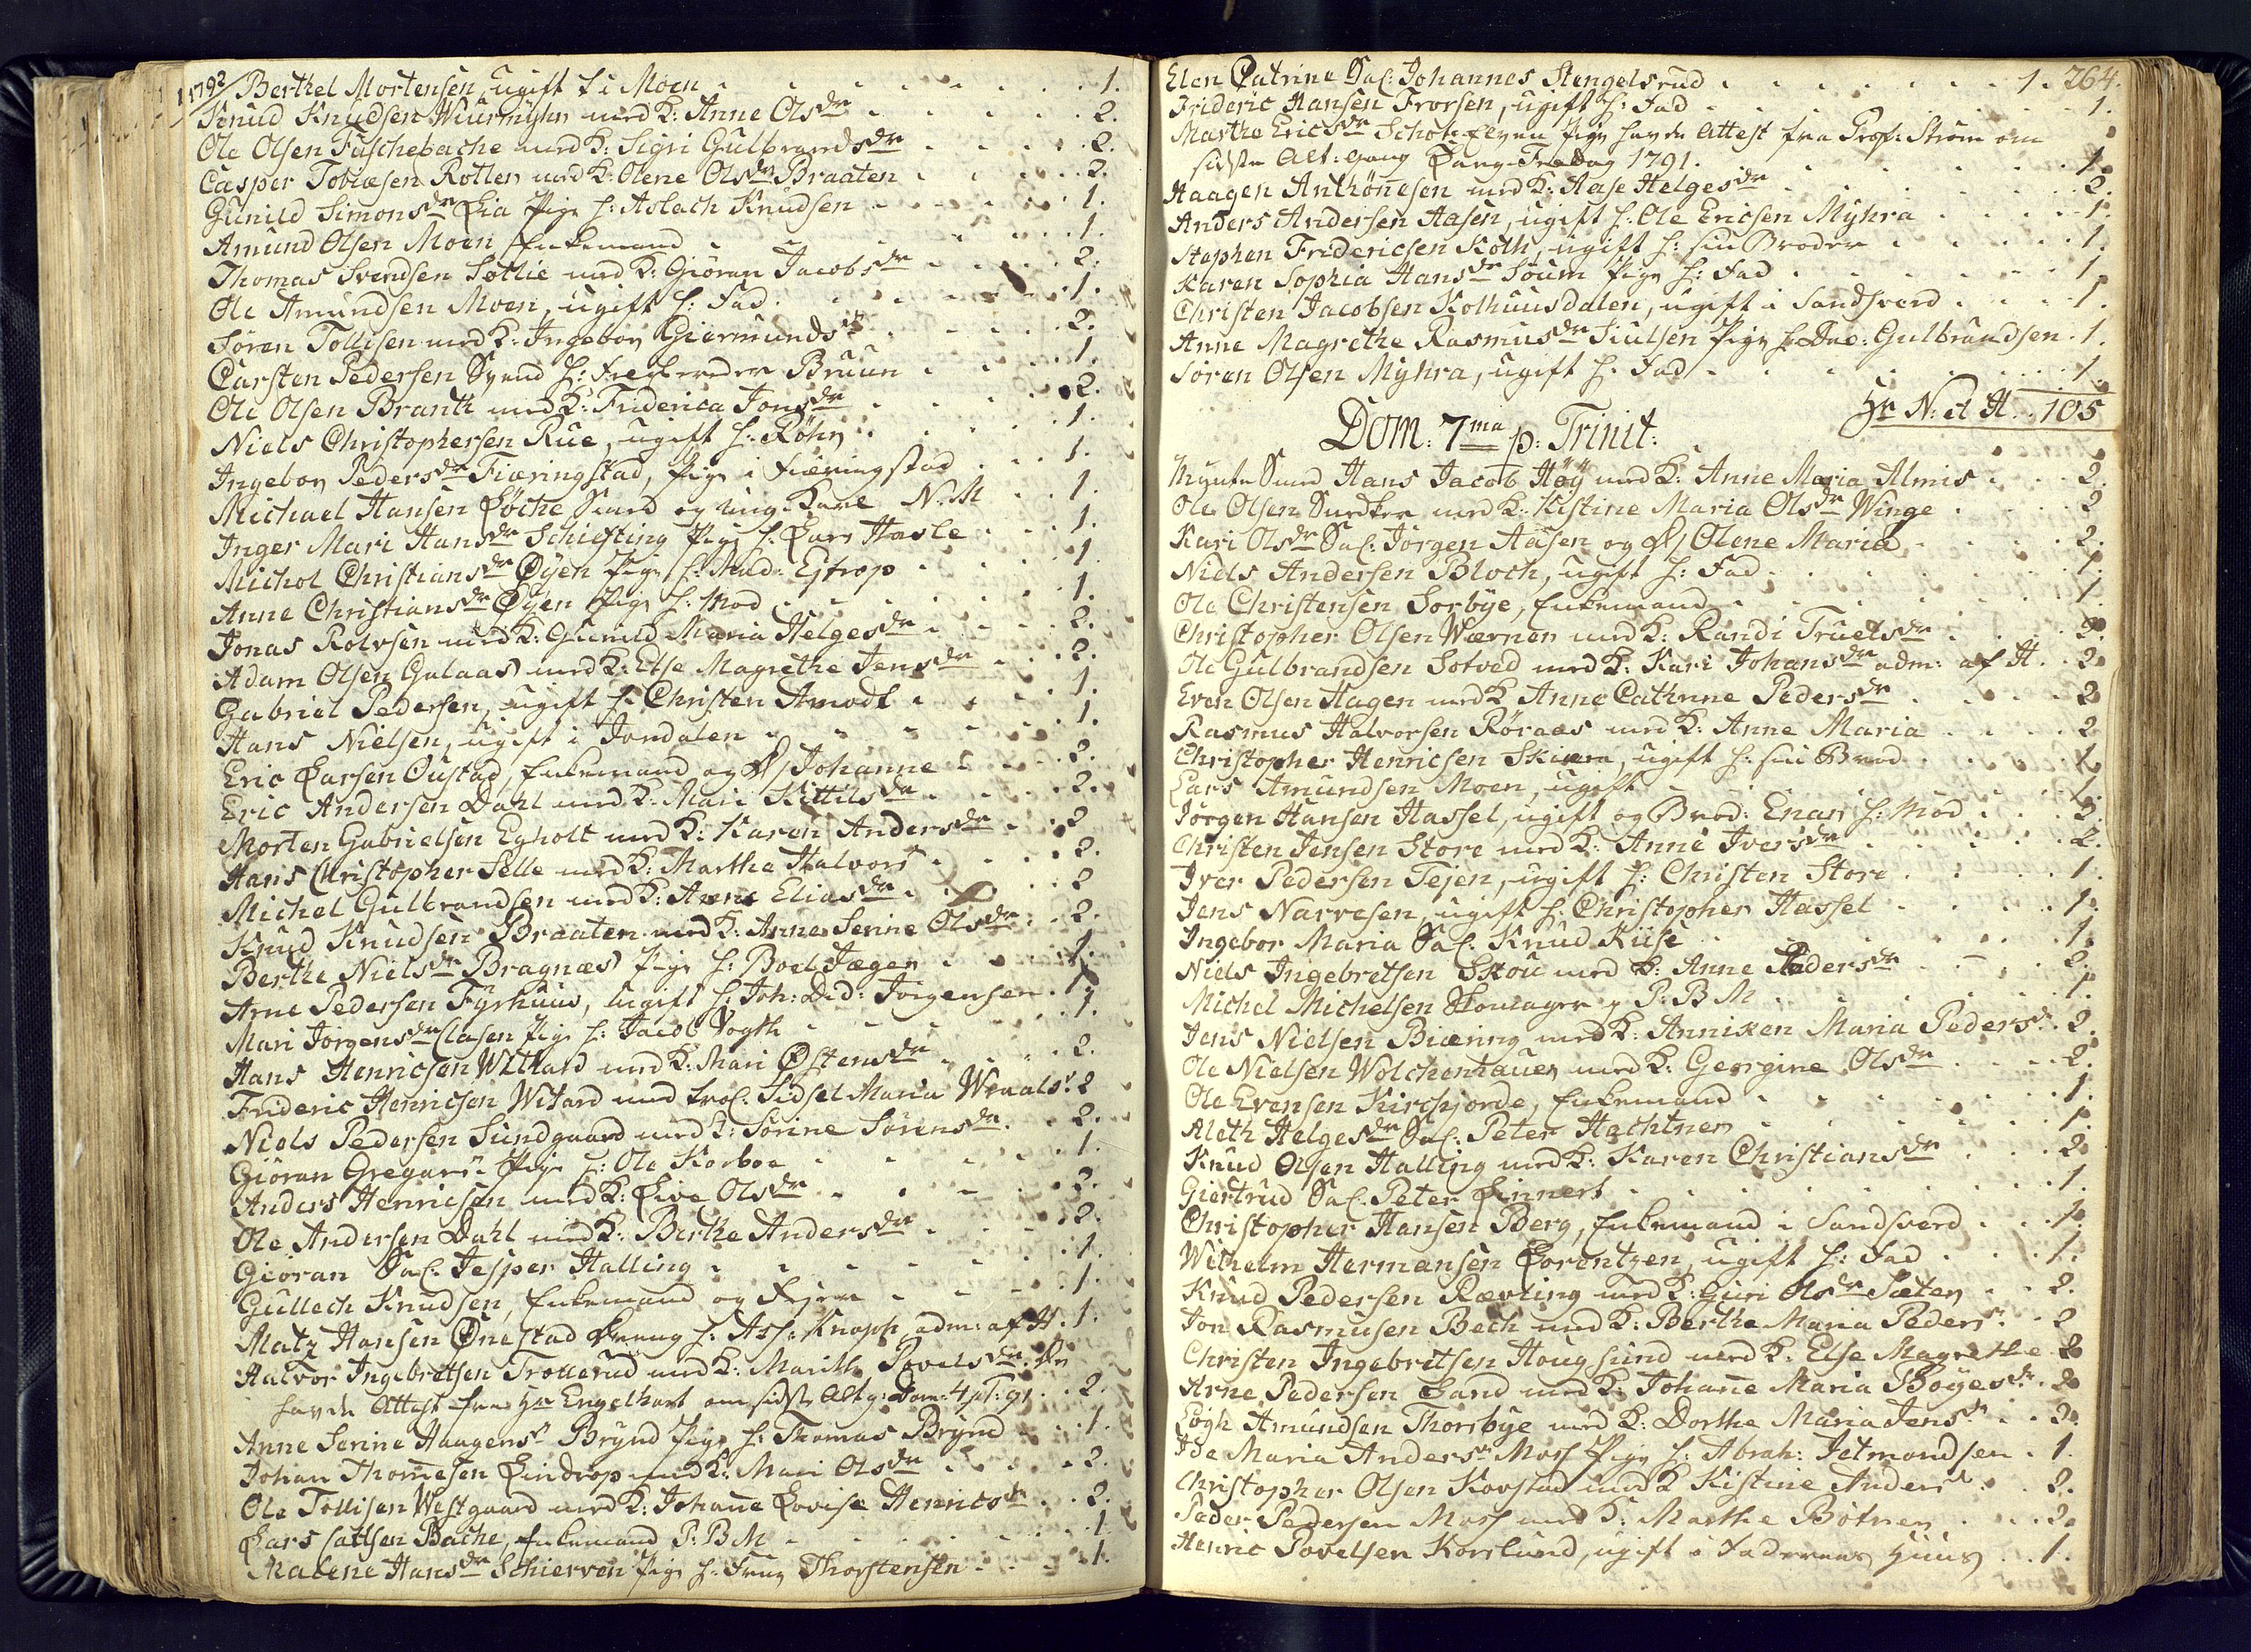 1792
Berthel Mortensen, ugift i Moen 1.
Knud Knudsen Wiurmyhr med K: Anne Olsdr 2.
Ole Olsen Fuschebache med K: Sigri Gulbrandsdr 2.
Casper Tobiæsen Rotler med K: Olene Olsdr Braaten 2.
Gunild Simonsdr Lia Pige h: Aslach Knudsen 1.
Amund Olsen Moen Enkemand 1.
Thomas Svendsen Sotlie med K: Giöran Jacobsdr 2.
Ole Amundsen Moen, ugift h: Fad 1.
Sören Tollisen med K: Ingebor Giermundsdr 2.
Carsten Pedersen Svend h: Bruun 1.
Ole Olsen Branth med K: Friderica Jonsdr 2.
Niels Christophersen Rue, ugift h: Röhr 1.
Ingebor Pedersdr Fiæringstad, Pige i Fiæringstad 1.
Michael Hansen Löche Smed og ung Karl N. M 1.
Inger Mari Hansdr Schiefting Pige h: Lars Hasle 1.
Michol Christiansdr Öyen Pige h: Mad: Ejtrop 1
Anne Christiansdr Öyen Pige h: Mod 1.
Jonas Rolvsen med K: Gunild Maria Helgesdr 2.
Adam Olsen Gulaas med K: Else Magrethe Jensdr 2.
Gabriel Pedersen, ugift h: Christen Amodt 1.
Hans Nielsen, ugift i Jondalen 1.
Eric Larsen Oustad, Enkemand og D/ Johanne 2.
Eric Andersen Dahl med K: Mari Kittilsdr 2.
Morten Gabrielsen Egholt med K: Karen Andersdr 2
Hans Christopher Selle med K: Marthe Halvors 2.
Michel Gulbrandsen med K: Anne Eliasdr 2
Knud Knudsen Braaten med K: Anne Serine Olsdr 2.
Berthe Nielsdr Bragnæs Pige h: Boel Jæger 1.
Arne Pedersen Fyrhuus, ugift h: Joh: Did: Jörgensen 1.
Mari Jörgensdr Clasen Pige h: Jacob Vogth 1.
Hans Henricsen Withard med K: Mari Östensdr 2.
Frideric Henricsen Witard med trol: Sidsel Maria Wraalsdr 2
Niels Pedersen Sundgaard med K: Sörine Sörensdr 2.
Giöran Gregarsdr Pige h: Ole Korboe 1.
Anders Henricsen med K: Live Olsdr 2.
Ole Andersen Dahl med K: Berthe Andersdr 2.
Giöran Sal: Jesper Halling 1.
Gullech Knudsen, Enkemand og 1
Matz Hansen Önestad Dreng h: Ass: Knoph adm: af H. 1.
Halvor Ingebretsen Trollerud med K: Marithe Povelsdr de
havde Attest fra Hr Engelhart om sidste Altg: Dom: 4 p T: 91 2.
Anne Serine Haagensdr Brynd Pige h: Thomas Brynd 1.
Johan Thomesen Lindrop med K: Mari Olsdr 2.
Ole Tollisen Westgaard med K: Johane Lovise Henricsdr 2.
Lars Bache, Enkemand P: B M 1
Malene Hansdr Schierven Pige h: Frue Thorstensen 1.
Elen Catrine Sal: Johannes Stengelsrud 1. 264.
Frideric Hansen Frorsen, ugift h: Fad 1.
Marthe Ericsdr Pige havde Attest fra Prof: Ström om
sidste Alt: Gang Lang-Fredag 1791. 1.
Haagen Anthönesen med K: Aase Helgesdr 2.
Anders Andersen Aasen, ugift h: Ole Ericsen Myhra 1.
Stephen Fridericsen Koth, ugift h: sin Broder 1.
Karen Sophia Hansdr Soum Pige h: Fad 1.
Christen Jacobsen Kolhuusdalen, ugift i Sandsverd 1.
Anne Magrethe Rasmusdr Siulsen Pige h: Dae: Gulbrandsen 1.
Sören Olsen Myhra, ugift h: Fad 1.
Hr N: et H. 105
Dom: 7ma p: Trinit:
Mynte Smed Hans Jacob Höy med K: Anne Maria Almis 2.
Ole Olsen Snedker med K: Kistine Maria Olsdr Winge 2
Kari Olsdr Sal: Jörgen Aasen og D/ Olene Maria 2.
Niels Andersen Bloch, ugift h: Fad 1.
Ole Christensen Sorbye, Enkemand 1
Christopher Olsen Wærner med K: Randi Truelsdr 2.
Ole Gulbrandsen Sotved med K: Kari Johansdr adm: af H. 2
Even Olsen Hagen med K Anne Cathrine Pedersdr 2
Rasmus Halvorsen Röraas med K: Anne Maria 2
Christopher Henricsen Skiæra, ugift h: sin Brod 1
Lars Amundsen Moen, ugift 1.
Jörgen Hansen Hassel, ugift og Brod: Enar h: Mod 3.
Christen Jensen Store med K: Anne Iversdr 2.
Iver Pedersen Tejen, ugift h: Christen Store 1.
Jens Narvesen, ugift h: Christopher Hassel 1.
Ingebor Maria Sal: Knud Riise 1.
Niels Ingebretsen Skou med K: Anne Pedersdr 2.
Michel Michelsen Skomager P: B M 1.
Jens Nielsen Biæring med K: Anniken Maria Pedersdr 2.
Ole Nielsen Wolchenhauer med K: Georgine Olsdr 2.
Ole Evensen Kirchjorde, Enkemand 1.
Aleth Helgesdr Sal: Peter Hachtner 1.
Knud Olsen Halling med K: Karen Christiansdr 2
Giertrud Sal: Peter Linnert 1.
Christopher Hansen Berg, Enkemand i Sandsverd 1.
Wilhelm Hermansen Lorentzen, ugift h: Fad 1.
Knud Pedersen Rævling med K: Guri Olsdr Sæter 2.
Jon Rasmusen Bech med K: Berthe Maria Pedersdr 2
Christen Ingebritsen Hougsund med K: Else Magrethe 2
Arne Pedersen Sand med K: Johane Maria Böyesdr 2
Amundsen Thorsbye med K: Dorthe Maria Jensdr 2.
Ide Maria Andersdr Moss Pige h: Abrah: Jetmondsen 1.
Christopher Olsen Korstad med K Kistine Andersdr 2.
Peder Pedersen Moss med K: Marthe Bötner 2.
Henric Povelsen Korslund, ugift i Faderens Huus 1.